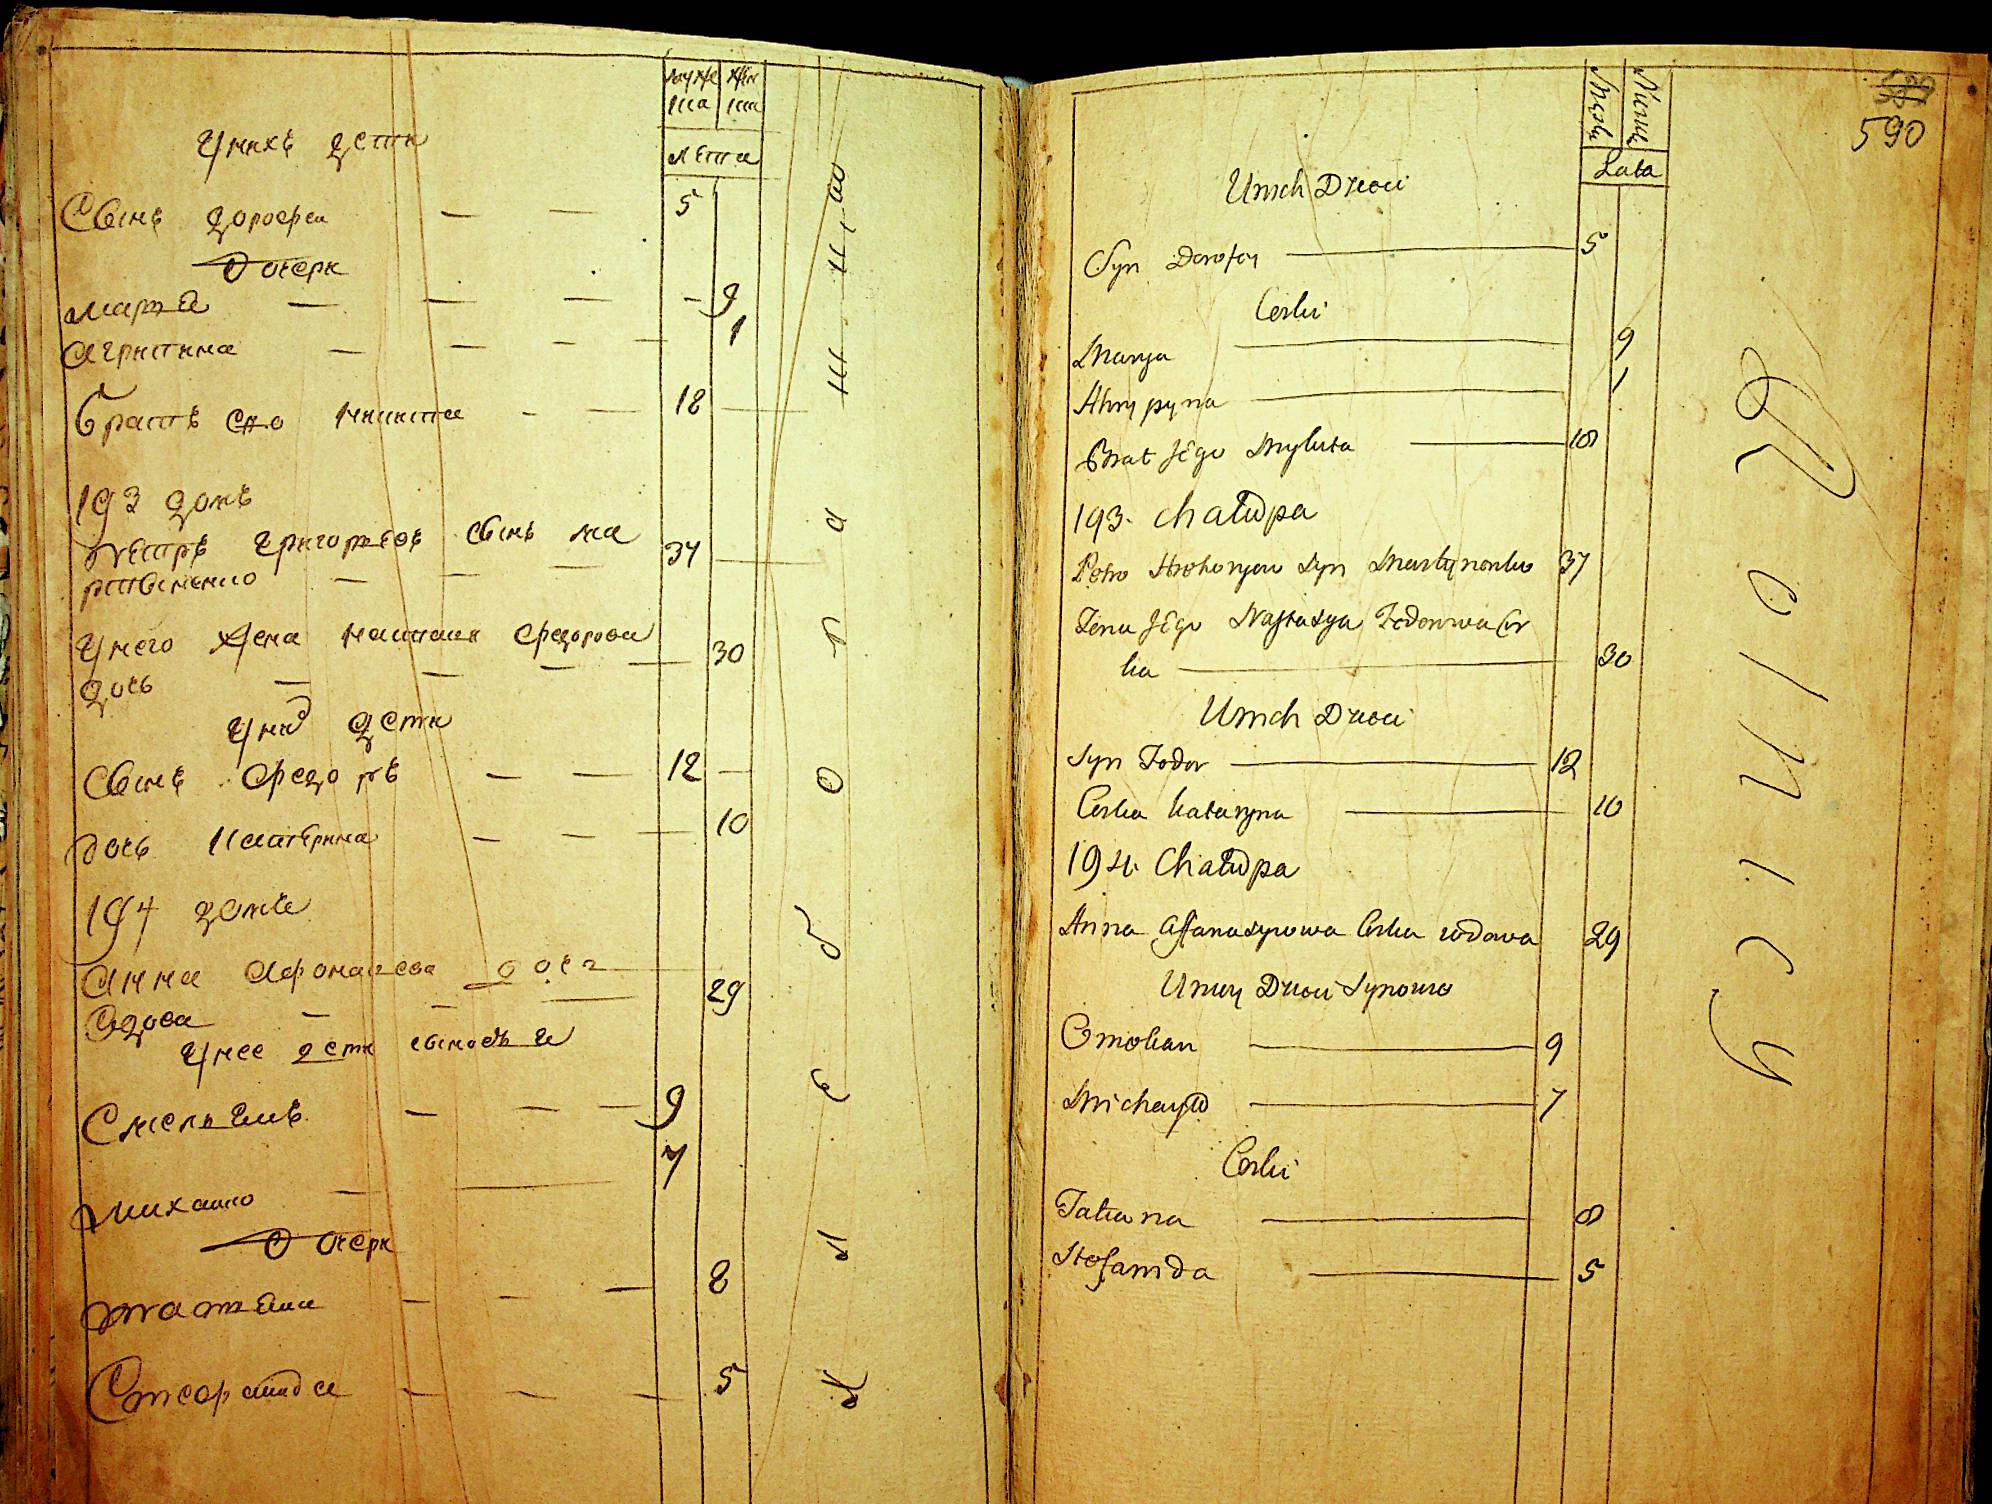 муже
ска
жен
ска
лета
Унихъ дети
Сынъ дорофеи 5
Дочери
Маря 9
Агрипина 1
братъ его никита 18
193 домъ
Петръ Григорьевъ сынъ ма
ртыненко 37
Унего жена насталия федорова
дочь 30
Уних дети
Сынъ федоръ 12
дочь Катерина 10
194 домъ
Анна Афонасева дочь
вдова 29
Унее дети сыновья
Емельянъ 9
Михаило 7
Дочери
татяна 8
Стефанида 5
590
Męzcy
Niewia
Lata
Unich Dzieci
Syn Dorofey 5
Corki
Marya 9
Ahrypyna 1
Brat Jego Mykita 18
193. Chałupa
Petro Hrehoryew Syn Martynenko 37
Żena Jego Nastasya Fedorowa Cor
ka 30
Unich Dzieci
Syn Fedor 12
Corka Kataryna 10
194. Chałupa
Anna Affanasyowa Corka wdowa 29
Uniey Dzieci Synowie
Omelian 9
Michayło 7
Corki
Tatiana 8
Stefanida 5
Rolnicy